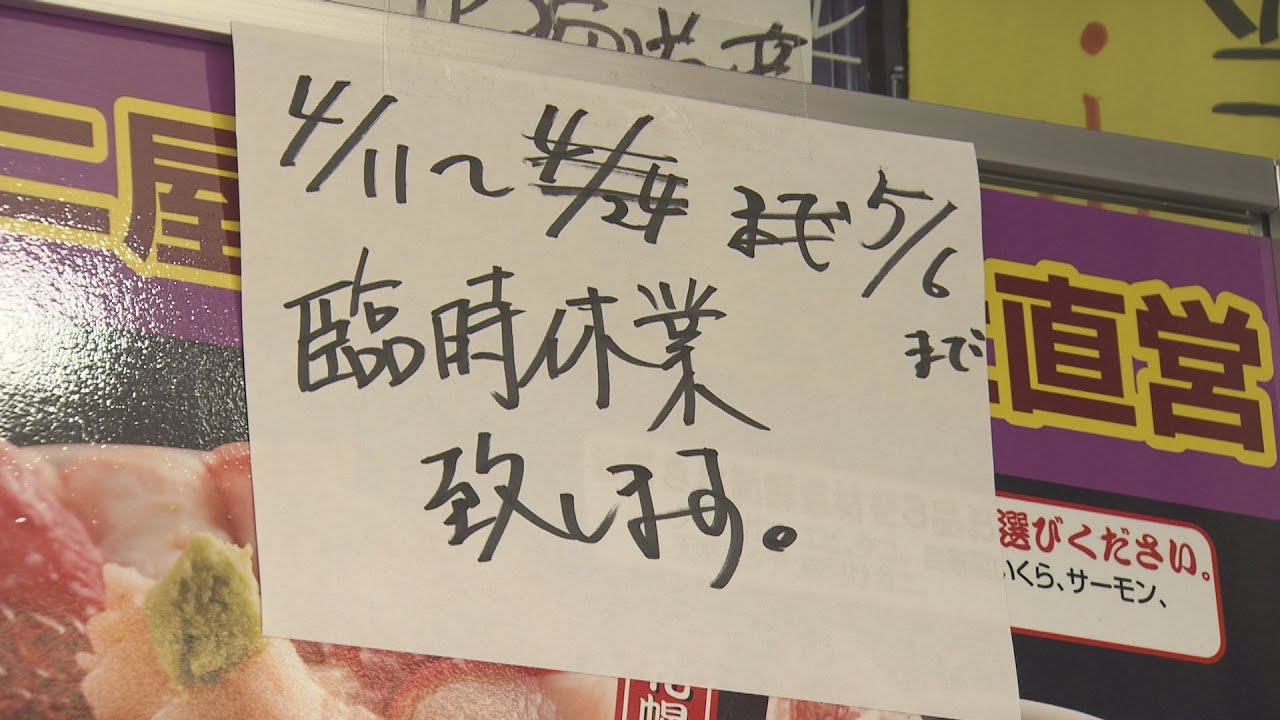 4/11~4/24まで5/6
まで
臨時休業
致します。
二屋
直営
選びください。
いくら、サーモン、